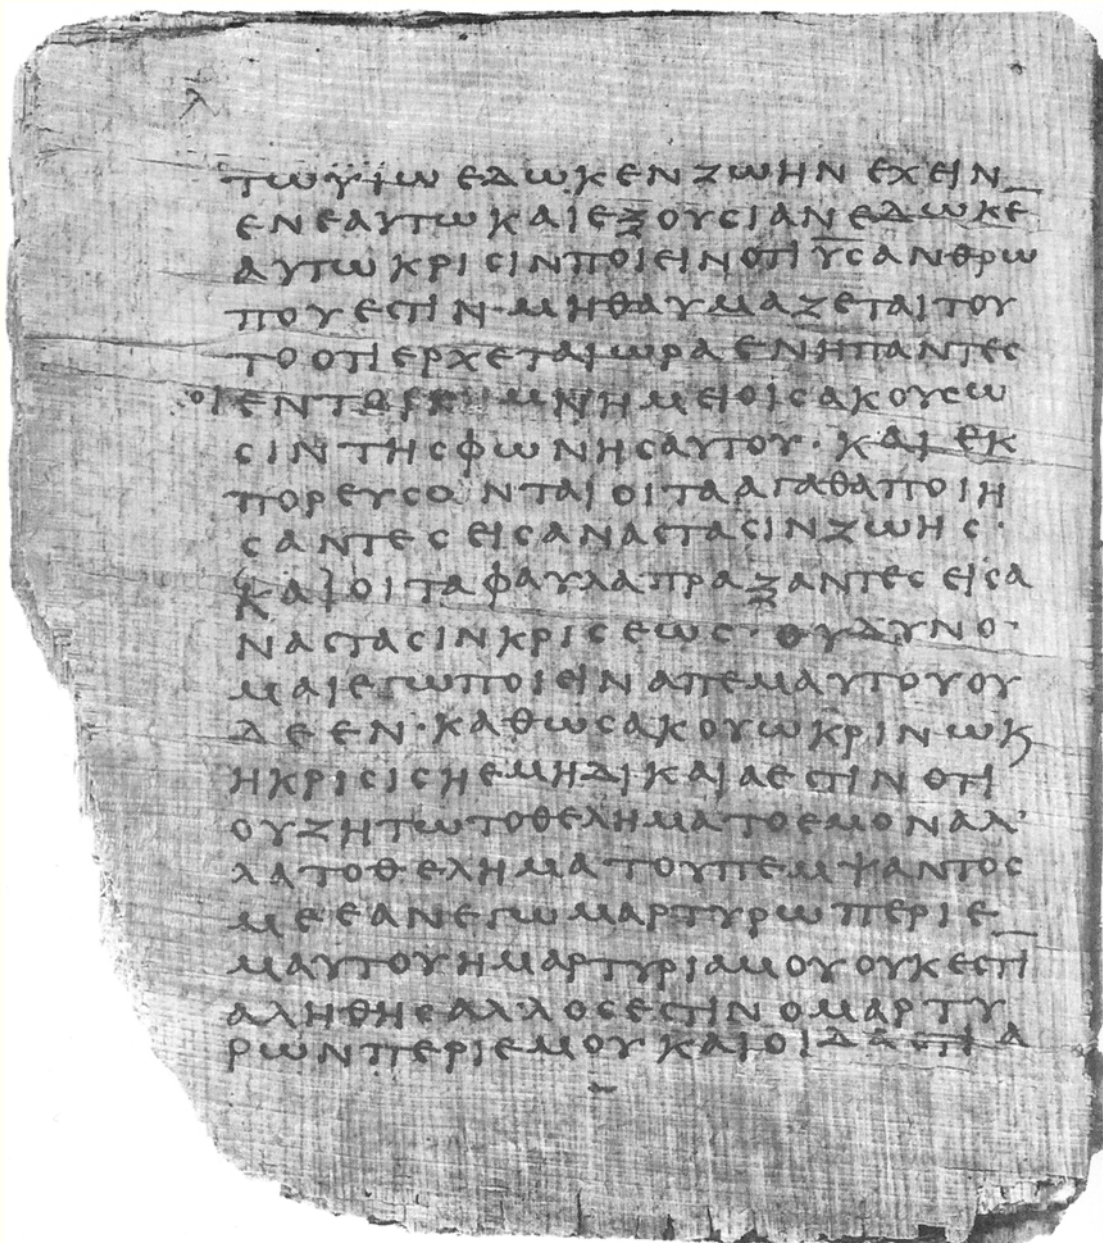 λ
τωϋϊωεδωκενζωηνεχειν
ενεαυτωκαιεξουσιανεδωκε
αυτωκρισινποιεινοτιυ̅ς̅ανθρω
πουεστιν·μηθαυμαζεταιτου
τοοτιερχεταιωραενηπαντες
οιεντ μνημειοισακουσω
σιντηςφωνηςαυτου·καιεκ
πορευσονταιοιτααγαθαποιη
σαντεςειςαναστασινζωης·
καιοιταφαυλαπραξαντεςεισα
ναστασινκρισεως·ουδυνο·
μαιεγωποιειναπεμαυτουου
δεεν·καθωσακουωκρινωκ
ηκρισισηεμηδικαιαεστινοτι
ουζητωτοθεληματοεμοναλ’
λατοθεληματουπεμψαντος
μεεανεγωμαρτυρωπεριε
μαυτουημαρτυριαμουουκεστι
αληθησαλλοσεστινομαρτυ
ρωνπεριεμουκαιοιδα